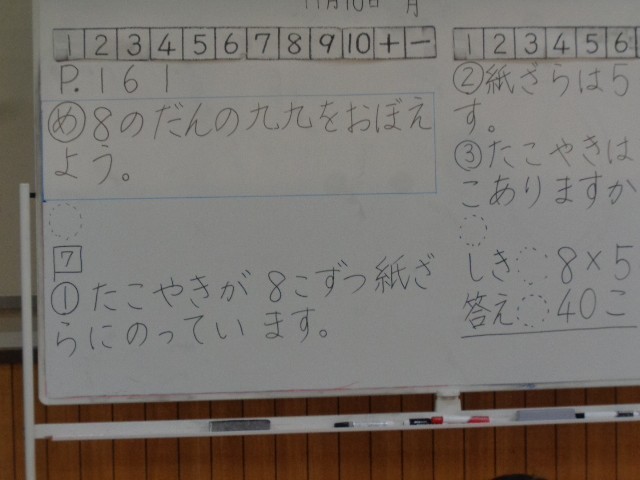 11月10日 月
1 2 3 4 5 6 7 8 9 10 + −
P.161
め 8のだんの九九をおぼえ
よう。
7
① たこやきが 8こずつ紙ざ
らにのってい ます。
1 2 3 4 5 6
②紙ざらは5
す。
③たこやきは
こありますか
しき 8×5
答え 40こ